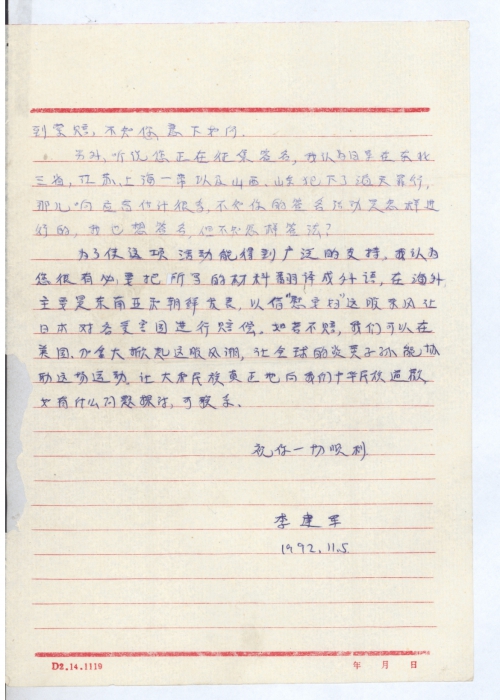 到索赔，不知你意下如何。
另外，听说您正在征集签名，我认为日军在东北
三省，江苏、上海一带以及山西、山东犯下了滔天罪行，
那儿响应者估计很多，不知你的签名活动是怎样进
行的，我也想签名，但不知怎样签法？
为了使这项活动能得到广泛的支持，我认为
您很有必要把所写的材料翻译成外语，在海外
主要是东南亚及朝鲜发表，以借"慰安妇"这股东风让
日本对各受害国进行赔偿，如若不赔，我们可以在
美国、加拿大掀起这股风潮，让全球的炎黄子孙能协
助这场运动，让大和民族真正地向我们中华民族道歉
如有什么问题探讨，可联系。
祝你一切顺利
李建军
1992.11.5
D2.14.1119 年 月 日